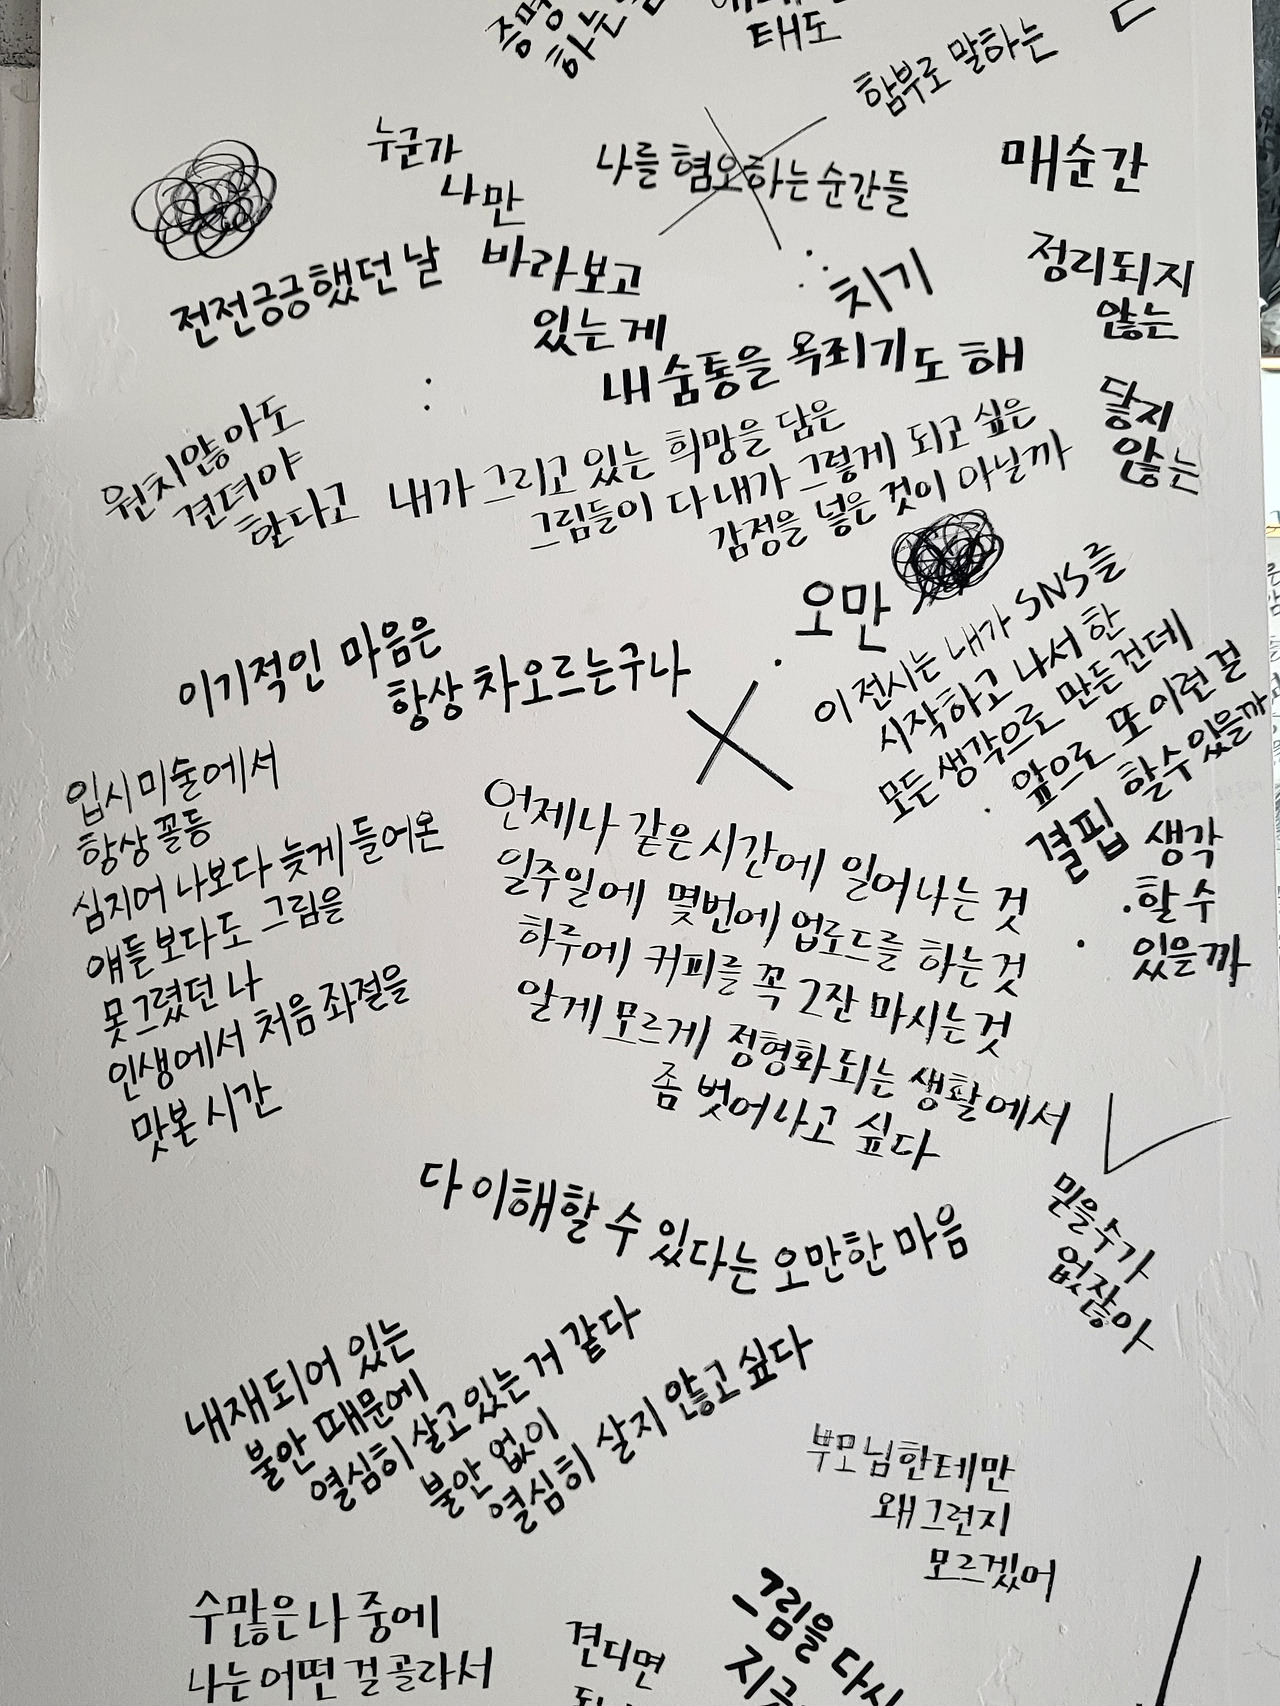 증명
하는
태도
함부로 말하는
누군가
나만
바라보고
있는 게
나를 혐오하는 순간들
매순간
정리되지
않는
닿지
않는
전전긍긍했던 날
치기
내 숨통을 옥죄기도 해
원치않아도
견뎌야
한다고
내가 그리고 있는 희망을 담은
그림들이 다 내가 그렇게 되고 싶은
감정을 넣은 것이 아닐까
오만
이기적인 마음은
항상 차오르는구나
이 전시는 내가 SNS를
시작하고 나서 한
모든 생각으로 만든건데
앞으로 또 이런 걸
할수있을까
결핍
생각
할 수
있을까
입시미술에서
항상 꼴등
심지어 나보다 늦게 들어온
얘들보다도 그림을
못그렸던 나
인생에서 처음 좌절을
맛본 시간
언제나 같은 시간에 일어나는 것
일주일에 몇번에 업로드를 하는 것
하루에 커피를 꼭 2잔 마시는 것
알게 모르게 정형화 되는 생활에서
좀 벗어나고 싶다
다 이해할 수 있다는 오만한 마음
믿을수가
없잖아
내재되어 있는
불안 때문에
열심히 살고있는 거 같다
불안 없이
열심히 살지 않고 싶다
부모님한테만
왜 그런지
모르겠어
수많은 나 중에
나는 어떤 걸 골라서
견디면
그림을 다시